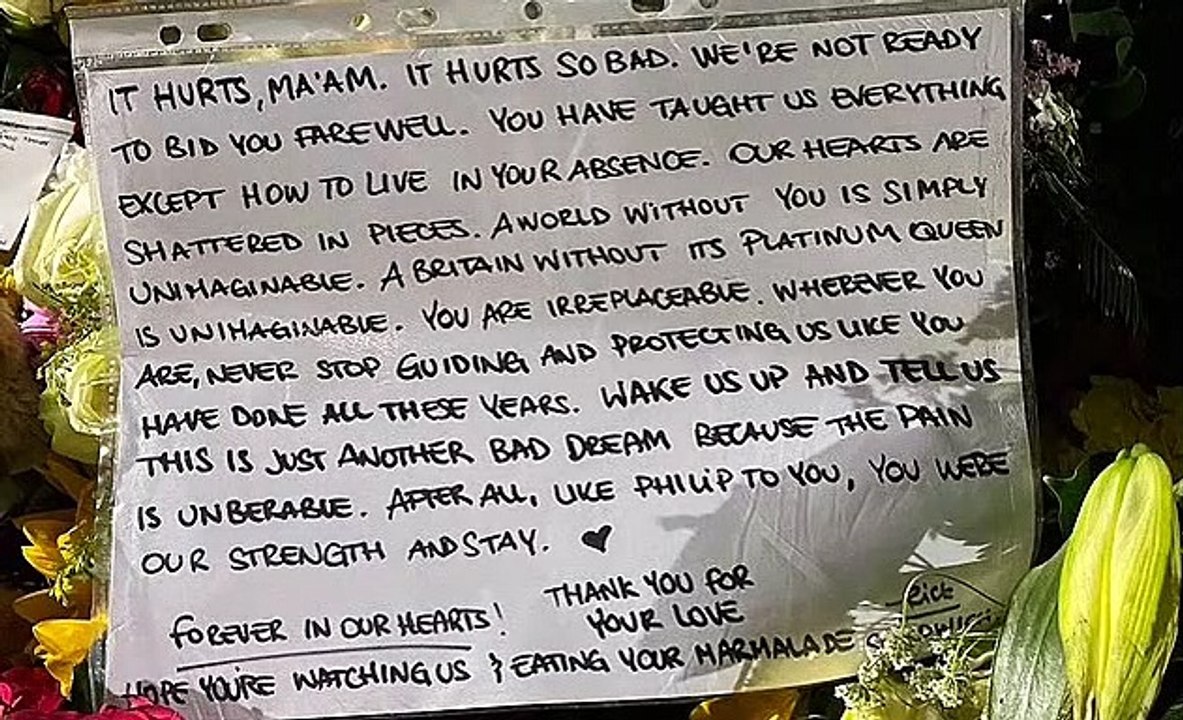 IT HURTS, MA'AM. IT HURTS SO BAD. WE'RE NOT READY
TO BID YOU FAREWELL. YOU HAVE TAUGHT US EVERYTHING
EXCEPT HOW TO LIVE IN YOUR ABSENCE. OUR HEARTS ARE
SHATTERED IN PIECES. A WORLD WITHOUT YOU IS SIMPLY
UNIMAGINABLE. A BRITAIN WITHOUT ITS PLATINUM QUEEN
IS UNIMAGINABLE. YOU ARE IRREPLACEABLE. WHEREVER YOU
ARE, NEVER STOP GUIDING AND PROTECTING US LIKE YOU
HAVE DONE ALL THESE YEARS. WAKE US UP AND TELL US
THIS IS JUST ANOTHER BAD DREAM BECAUSE THE PAIN
IS UNBERABLE. AFTER ALL, LIKE PHILIP TO YOU, YOU WERE
OUR STRENGTH AND STAY. ♥
FOREVER IN OUR HEARTS! THANK YOU FOR
YOUR LOVE
Rick
HOPE YOU'RE WATCHING US & EATING YOUR MARMALADE